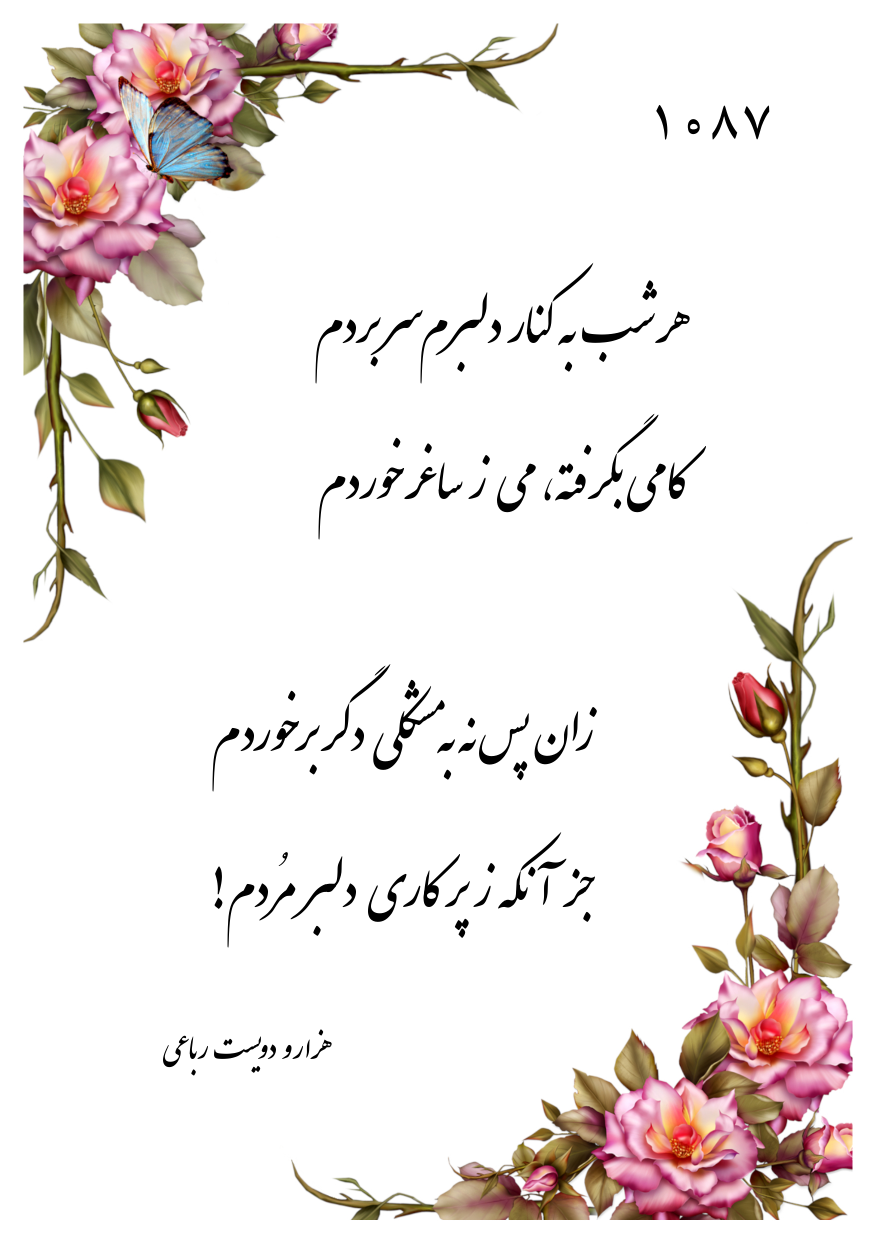 ۱۰۸۷
هر شب به کنار دلبرم سر بردم
کامی بگرفته، می ز ساغر خوردم
زان پس نه به مشکلی دگر برخوردم
جز آنکه ز پر کاری دلبر مُردم!
هزار و دویست رباعی